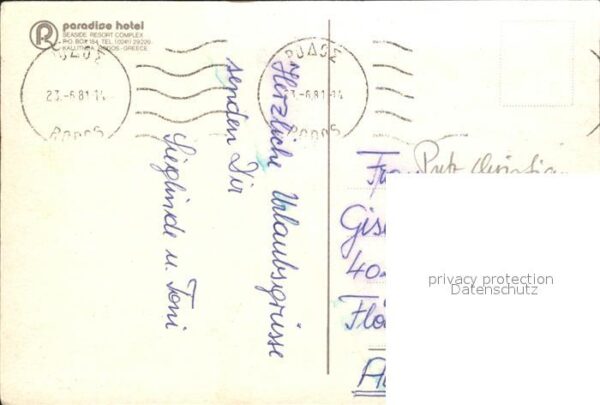 paradise hotel
SEASIDE RESORT COMPLEX
P.O. BOX 184, TEL. (0241) 29220
KALLITHEA, RODOS - GREECE
23.-6.81.14
RODOS
23.-6.81.14
RODOS
Herzliche Urlaubsgrüsse
senden Dir
Sieglinde u. Toni
privacy protection
Datenschutz